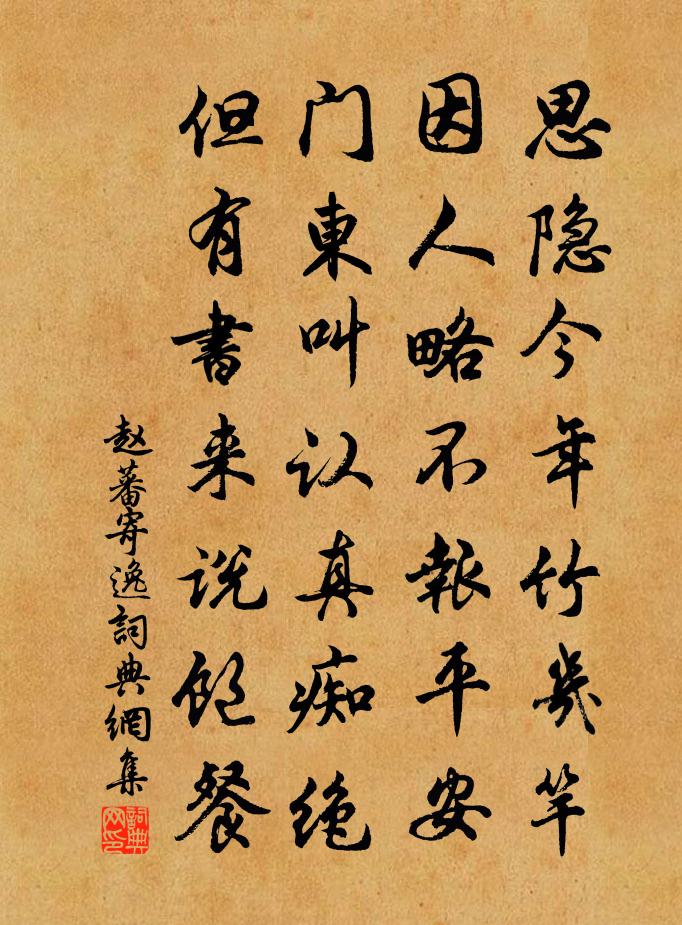 思隐今年竹幾竿
因人略不報平安
门東叫认真痴绝
但有書来说饱餐
赵蕃寄逸詞典網集
詞典网印